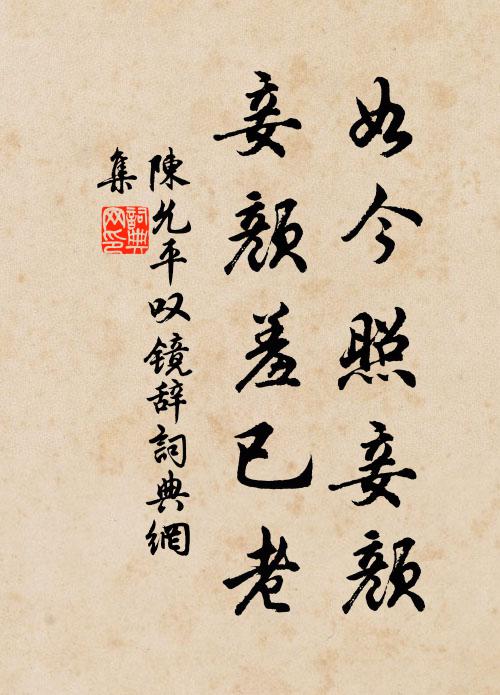 如今照妾颜
妾颜羞已老
陳允平叹镜辞詞典網
集
詞典
网印